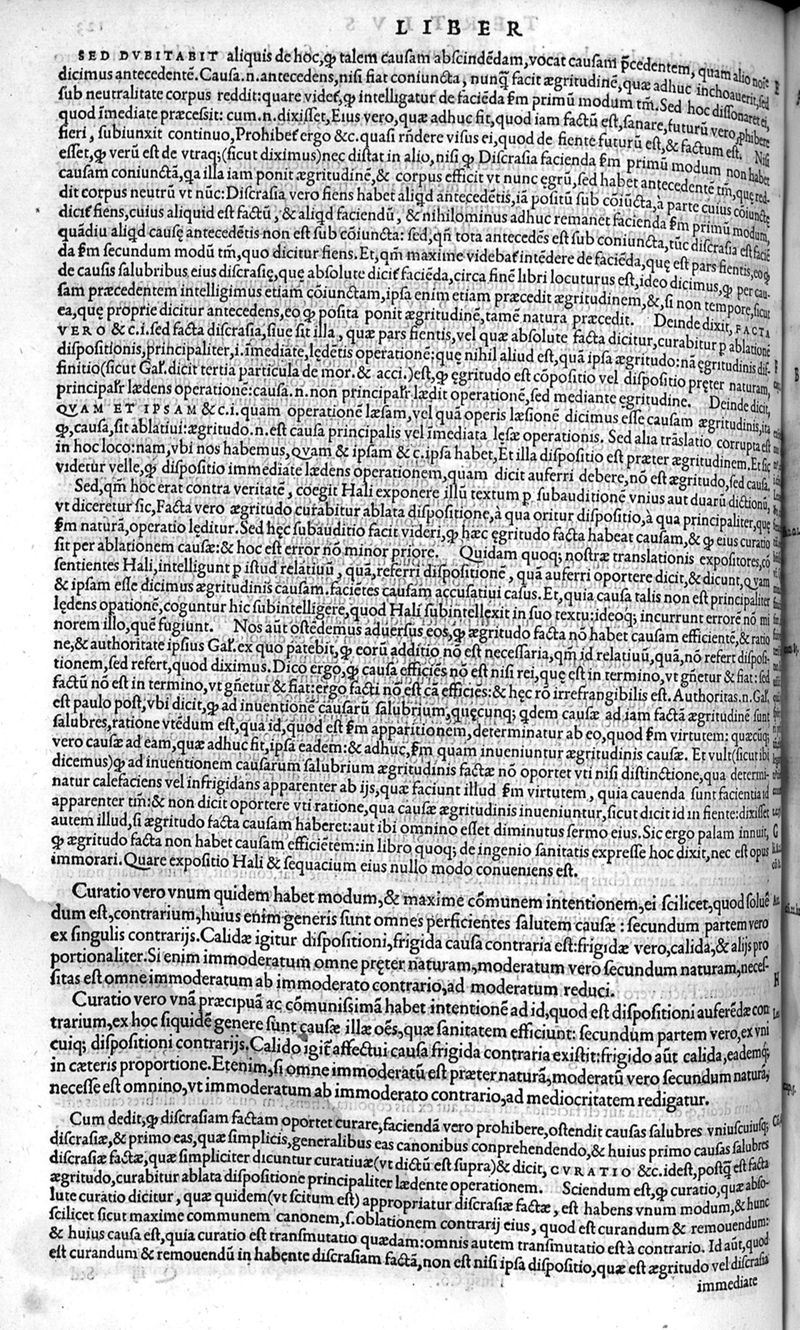 LIBER
SED DVBITABIT aliquis de hoc, ꝙ talem causam abscindēdam, vocat causam p̄cedentem, quam alio noīe
dicimus antecedentē. Causa.n.antecedens, nisi fiat coniuncta, nunꝗ̄ facit ægritudinē, quæ adhuc inchoauerit, sed
sub neutralitate corpus reddit: quare videt, ꝙ intelligatur de faciēda s̄m primū modum tm̄. Sed hoc dissonaret ei,
quod īmediate præcessit: cum.n.dixisset, Eius vero, quæ adhuc fit, quod iam factū est, sanare, futurū vero, ꝓhibere
fieri, subiunxit continuo, Prohibet ergo &c. quasi rn̄dere visus ei, quod de fiente futurū est, & factum est. Nisi
esset, ꝙ verū est de vtraq; (sicut diximus) nec distat in alio, nisi ꝙ Discrasia facienda s̄m primū modum non habet
causam coniunctā, qa illa iam ponit ægritudinē, & corpus efficit vt nunc ęgrū, sed habet antecedentē tm̄, quę red-
dit corpus neutrū vt nūc: Discrasia vero fiens habet aliqd antecedētis, iā positū sub cōiūcta, à parte cuius cōiūctę
dicit fiens, cuius aliquid est factū, & aliqd faciendū, & nihilominus adhuc remanet facienda s̄m primū modum,
quādiu aliqd causę antecedētis non est sub cōiuncta: sed, qn̄ tota antecedēs est sub coniuncta, tūc discrasia est faciē
da s̄m secundum modū tm̄, quo dicitur fiens. Et, qm̄ maxime videbat intēdere de faciēda, quę est pars fientis, eo ꝙ
de causis salubribus eius discrasię, quę absolute dicit faciēda, circa finē libri locuturus est, ideo dicimus, ꝙ per cau-
sam præcedentem intelligimus etiam cōiunctam, ipsa enim etiam præcedit ægritudinem, &, si non tempore, sicut
ea, quę proprie dicitur antecedens, eo ꝙ posita ponit ægritudinē, tamē natura præcedit. Deinde dixit, FACTA
VERO &c.i.sed facta discrasia, siue sit illa, quæ pars fientis, vel quæ absolute facta dicitur, curabitur p ablationē
dispositionis, principaliter, i. īmediate, lędētis operationē: quę nihil aliud est, quā ipsa ægritudo: nā ęgritudinis dif-
finitio (sicut Gal. dicit tertia particula de mor. & acci.) est, ꝙ ęgritudo est cōpositio vel dispositio pręter naturam,
principalr̄ lædens operationē: causa.n. non principalr̄ lædit operationē, sed mediante egritudine. Deinde dicit,
QVAM ET IPSAM &c.i. quam operationē læsam, vel quā operis læsionē dicimus esse causam ægritudinis, ita
ꝙ, causa, sit ablatiui: ægritudo.n.est causa principalis vel īmediata lęsæ operationis. Sed alia trāslatio corrupta est
in hoc loco: nam, vbi nos habemus, QVAM & ipsam & c. ipsa habet, Et illa dispositio est præter ægritudinem. Et sic
videtur velle, ꝙ dispositio immediate lædens operationem, quam dicit auferri debere, nō est ægritudo, sed causa.
Sed, qm̄ hoc erat contra veritatē, coegit Hali exponere illū textum p subauditionē vnius aut duarū dictionū,
vt diceretur sic, Facta vero ægritudo curabitur ablata dispositione, à qua oritur dispositio, à qua principaliter, quę
s̄m naturā, operatio lęditur. Sed hęc subauditio facit videri, ꝙ hæc ęgritudo facta habeat causam, & ꝙ eius curatio
sit per ablationem causæ: & hoc est error nō minor priore. Quidam quoq; nostræ translationis expositores, cō
sentientes Hali, intelligunt p istud relatiuū, quā, referri dispositionē, quā auferri oportere dicit, & dicunt, QVAM
& ipsam esse dicimus ægritudinis causam. facietes causam accusatiui casus. Et, quia causa talis non est principaliter
lędens opationē, coguntur hic subintelligere, quod Hali subintellexit in suo textu: ideoq; incurrunt errorē nō mi
norem illo, quē fugiunt. Nos aūt ostēdemus aduersus eos, ꝙ ægritudo facta nō habet causam efficientē, & ratio
ne, & authoritate ipsius Gal. ex quo patebit, ꝙ eorū additio nō est necessaria, qm̄ id relatiuū, quā, nō refert disposi-
tionem, sed refert, quod diximus. Dico ergo, ꝙ causa efficiēs nō est nisi rei, quę est in termino, vt gn̄etur & fiat: sed
factū nō est in termino, vt gn̄etur & fiat: ergo facti nō est cā efficiēs: & hęc rō irrefrangibilis est. Authoritas.n. Gal.
est paulo post, vbi dicit, ꝙ ad inuentionē causarū salubrium, quęcunq; qdem causæ ad iam factā ægritudinē sunt
salubres, ratione vtēdum est, qua id, quod est s̄m apparitionem, determinatur ab eo, quod s̄m virtutem: quæcūq;
vero causæ ad eam, quæ adhuc fit, ipsa eadem: & adhuc, s̄m quam inueniuntur ægritudinis causæ. Et vult (sicut ibi
dicemus) ꝙ ad inuentionem causarum salubrium ægritudinis factæ nō oportet vti nisi distinctione, qua determi-
natur calefaciens vel infrigidans apparenter ab ijs, quæ faciunt illud s̄m virtutem, quia cauenda sunt facientia id
apparenter tm̄: & non dicit oportere vti ratione, qua causæ ægritudinis inueniuntur, sicut dicit id in fiente: dixisset
autem illud, si ægritudo facta causam haberet: aut ibi omnino esset diminutus sermo eius. Sic ergo palam innuit,
ꝙ ægritudo facta non habet causam efficiētem: in libro quoq; de ingenio sanitatis expresse hoc dixit, nec est opus
immorari. Quare expositio Hali & sequacium eius nullo modo conueniens est.
Curatio vero vnum quidem habet modum, & maxime cōmunem intentionem, ei scilicet, quod soluē
dum est, contrarium, huius enim generis sunt omnes perficientes salutem causæ: secundum partem vero
ex singulis contrarijs. Calidæ igitur dispositioni, frigida causa contraria est: frigidæ vero, calida, & alijs pro
portionaliter. Si enim immoderatum omne pręter naturam, moderatum vero secundum naturam, neces-
sitas est omne immoderatum ab immoderato contrario, ad moderatum reduci.
Curatio vero vnā præcipuā ac cōmunissimā habet intentionē ad id, quod est dispositioni auferēdæ con
trarium, ex hoc siquidē genere sunt causæ illæ oēs, quæ sanitatem efficiunt: secundum partem vero, ex vni
cuiq; dispositioni contrarijs. Calido igit affectui causa frigida contraria existit: frigido aūt calida, eademq;
in cæteris proportione. Etenim, si omne immoderatū est præter naturā, moderatū vero secundum naturā,
necesse est omnino, vt immoderatum ab immoderato contrario, ad mediocritatem redigatur.
Cum dedit, ꝙ discrasiam factam oportet curare, faciendā vero prohibere, ostendit causas salubres vniuscuiusq;
discrasiæ, & primo eas, quæ simplicis, generalibus eas canonibus conprehendendo, & huius primo causas salubres
discrasiæ factæ, quæ simpliciter dicuntur curatiuæ (vt dictū est supra) & dicit, CVRATIO &c. idest, postꝗ̄ est facta
ægritudo, curabitur ablata dispositione principaliter lædente operationem. Sciendum est, ꝙ curatio, quæ abso-
lute curatio dicitur, quæ quidem (vt scitum est) appropriatur discrasiæ factæ, est habens vnum modum, & hunc
scilicet sicut maxime communem canonem, s. oblationem contrarij eius, quod est curandum & remouendum:
& huius causa est, quia curatio est transmutatio quædam: omnis autem transmutatio est à contrario. Id aūt, quod
est curandum & remouendū in habente discrasiam factā, non est nisi ipsa dispositio, quæ est ægritudo vel discrasia
immediate